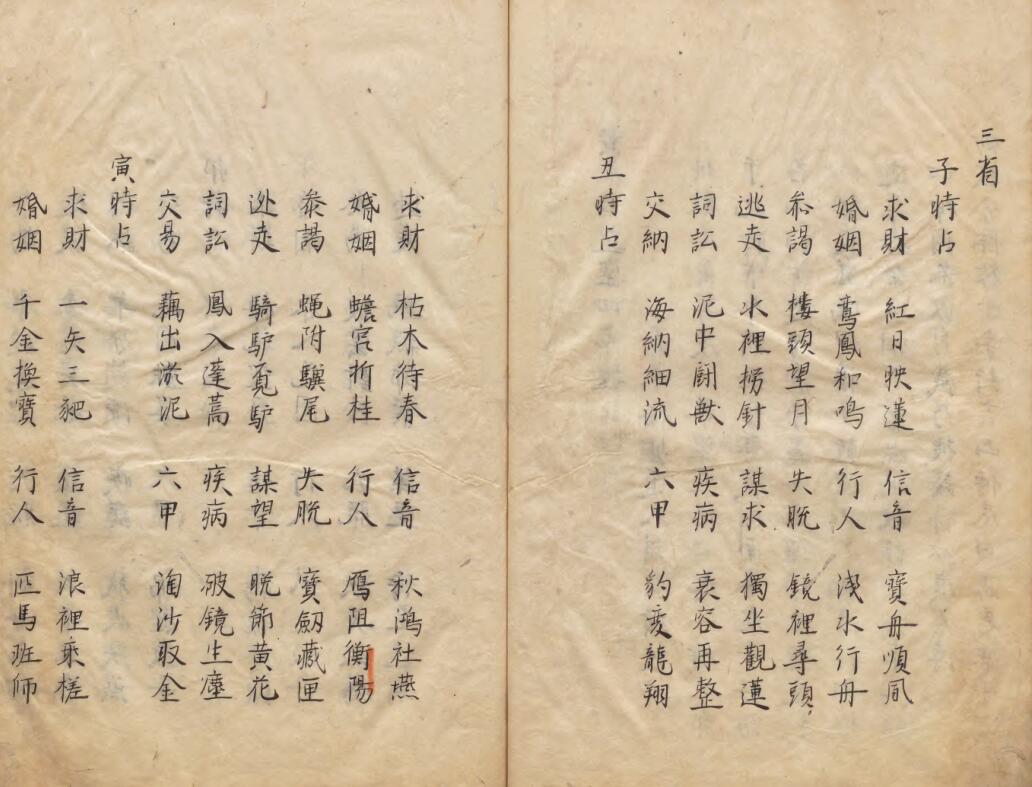 三省
子時占
求財 紅日映蓮 信音 寶舟順風
婚姻 鸾鳳和鳴 行人 浅水行舟
叅謁 楼頭望月 失脫 鏡裡尋頭
逃走 水裡撈針 謀求 獨坐觀蓮
詞訟 泥中鬪獣 疾病 衰容再整
交納 海納細流 六甲 豹变龍翔
丑時占
求財 枯木待春 信音 秋鴻社燕
婚姻 蟾宮折桂 行人 鴈阻衡陽
叅謁 蝇附驥尾 失脫 寶劔藏匣
迯走 騎馿覔馿 謀望 脫節黄花
詞訟 鳳入蓬蒿 疾病 破鏡生塵
交易 藕出淤泥 六甲 淘沙取金
寅時占
求財 一矢三豝 信音 浪裡乘槎
婚姻 千金換寶 行人 匹馬班师